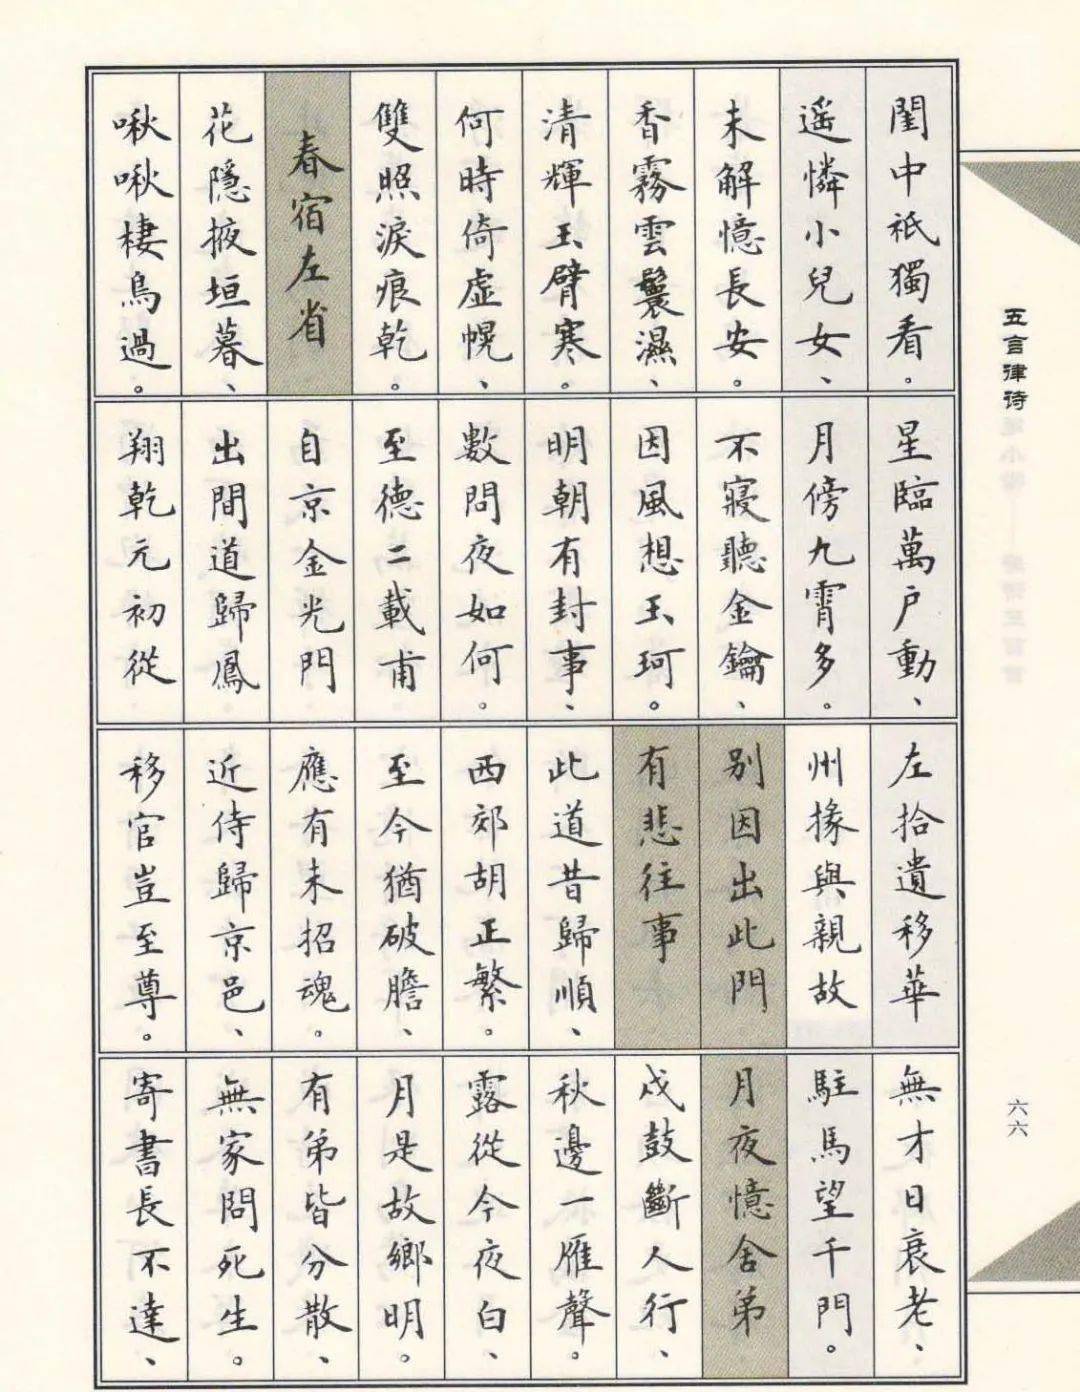 五言律诗
六六
閨中祇獨看。
遥憐小兒女、
未解憶長安。
香霧雲鬟濕、
清輝玉臂寒。
何時倚虛幌、
雙照淚痕乾。
春宿左省
花隱掖垣暮、
啾啾棲鳥過。
星臨萬户動、
月傍九霄多。
不寢聽金鑰、
因風想玉珂。
明朝有封事、
數問夜如何。
至德二載甫
自京金光門
出間道歸鳳
翔乾元初從
左拾遺移華
州掾與親故
别因出此門
有悲往事
此道昔歸順、
西郊胡正繁。
至今猶破膽、
應有未招魂。
近侍歸京邑、
移官豈至尊。
無才日衰老、
駐馬望千門。
月夜憶舍弟
戍鼓斷人行、
秋邊一雁聲。
露從今夜白、
月是故鄉明。
有弟皆分散、
無家問死生。
寄書長不達、